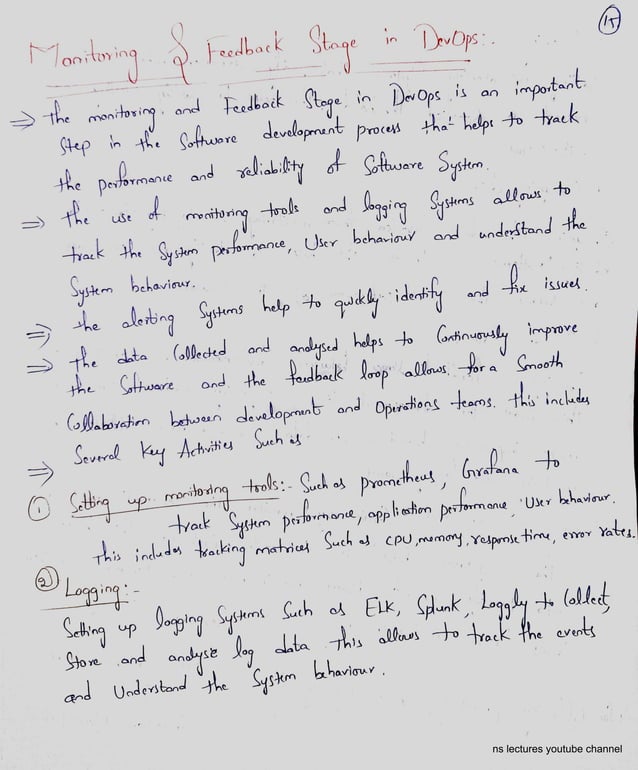 15
Monitoring & Feedback Stage in DevOps:.
⇒ the monitoring and Feedback Stage in DevOps is an important
Step in the Software development process that helps to track
the performance and reliability of Software System.
⇒ the use of monitoring tools and logging Systems allows to
track the System performance, User behaviour and understand the
System behaviour.
⇒ the alerting Systems help to quickly identify and fix issues
⇒ the data Collected and analysed helps to Continuously improve
the Software and the feedback loop allows for a Smooth
Collaboration between development and Operations teams. this includes
⇒ Several Key Activities Such as
① Setting up monitoring tools:- Such as prometheus, Grafana to
track System performance, application performance, User behaviour.
This includes tracking matrices Such as CPU, memory, response time, error rates.
② Logging:-
Setting up logging Systems Such as ELK, Splunk, Loggly to Collect,
Store and analyse log data this allows to track the events
and Understand the System behaviour.
ns lectures youtube channel